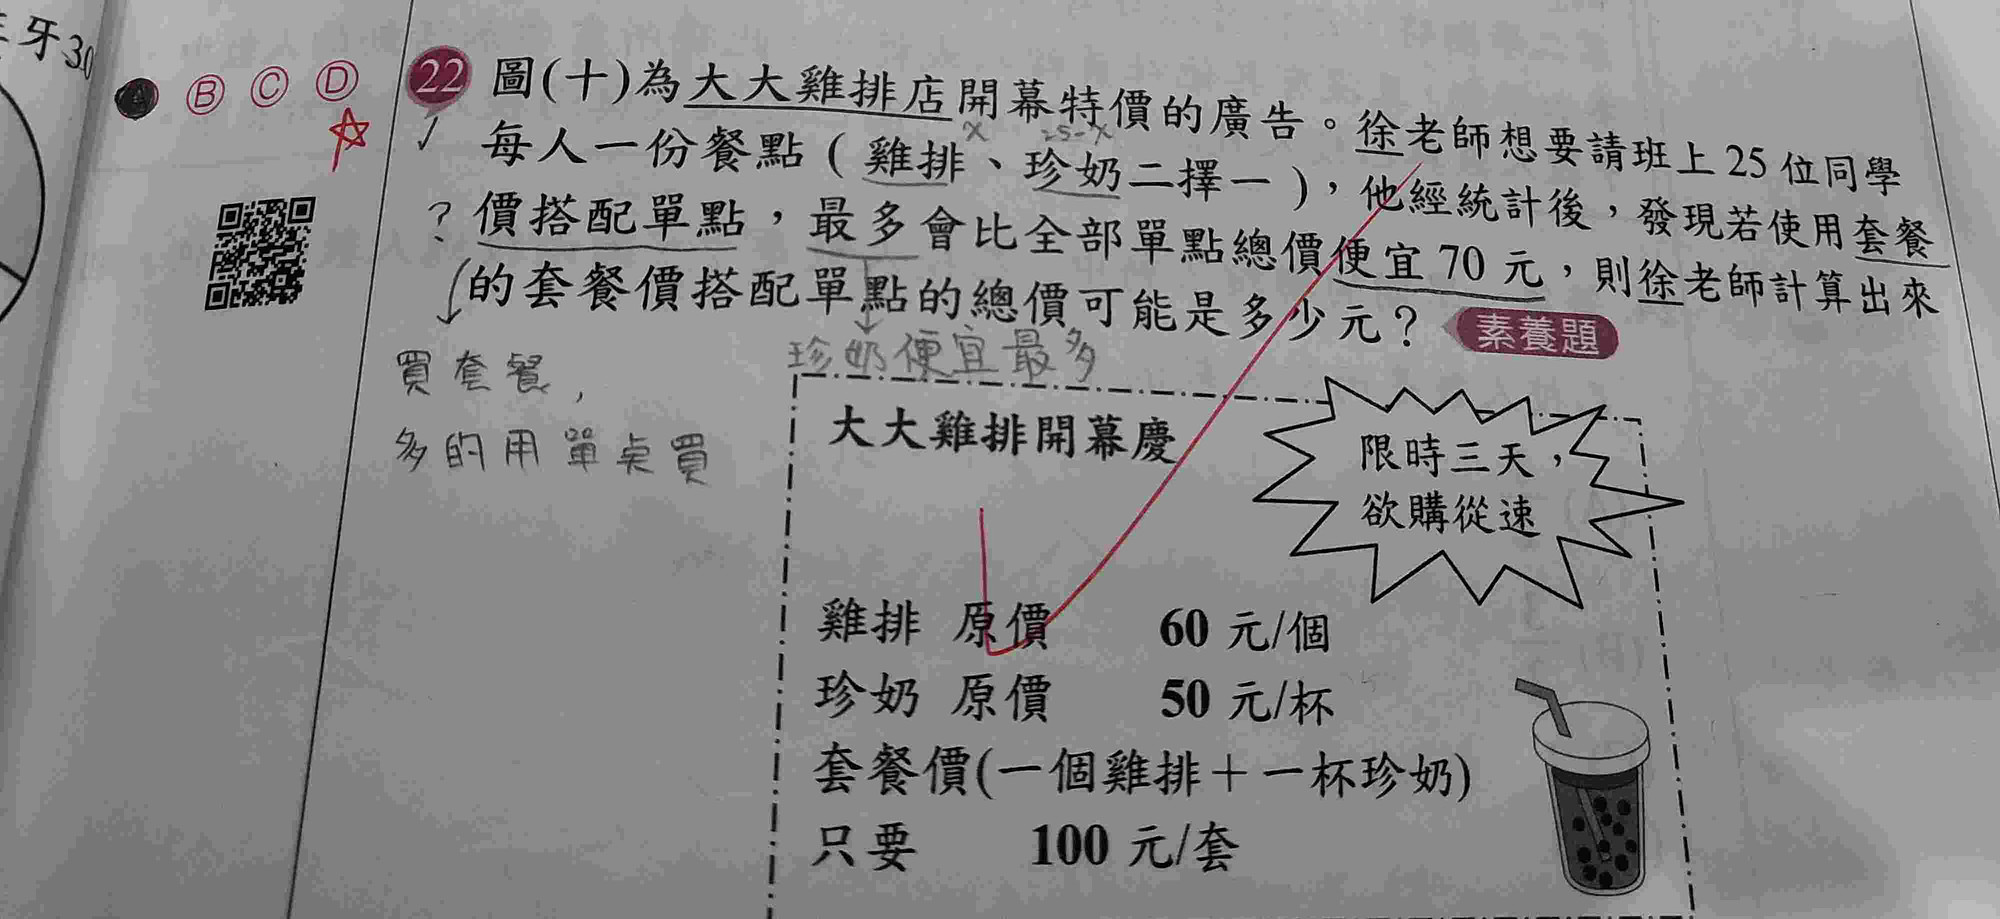 牙30
A B C D
22 圖(十)為大大雞排店開幕特價的廣告。徐老師想要請班上 25 位同學
x 25-x
每人一份餐點(雞排、珍奶二擇一),他經統計後,發現若使用套餐
? 價搭配單點,最多會比全部單點總價便宜 70 元,則徐老師計算出來
的套餐價搭配單點的總價可能是多少元? 素養題
珍奶便宜最多
買套餐,
多的用單点買
大大雞排開幕慶
限時三天,
欲購從速
雞排 原價 60 元/個
珍奶 原價 50 元/杯
套餐價(一個雞排+一杯珍奶)
只要 100 元/套